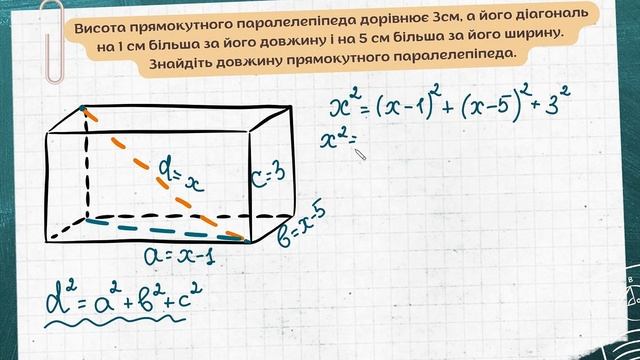 Висота прямокутного паралелепіпеда дорівнює 3см, а його діагональ
на 1 см більша за його довжину і на 5 см більша за його ширину.
Знайдіть довжину прямокутного паралелепіпеда.
x² = (x-1)² + (x-5)² + 3²
x² =
d = x
c = 3
в = x-5
a = x-1
d² = a² + в² + c²